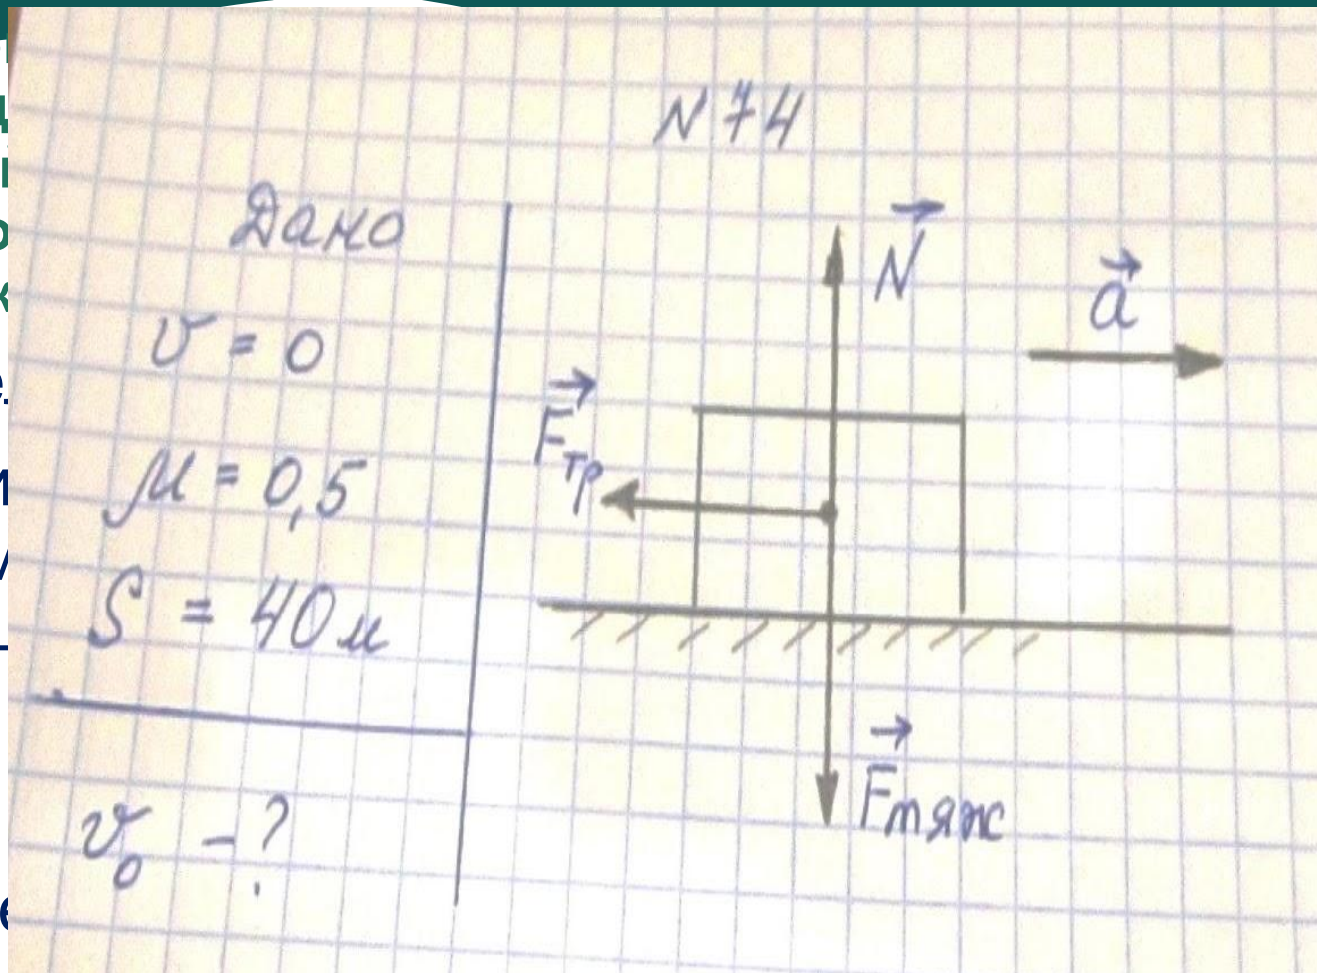 N 74
Дано
v = 0
μ = 0,5
S = 40 м
v₀ - ?
N
a
Fтр
Fтяж